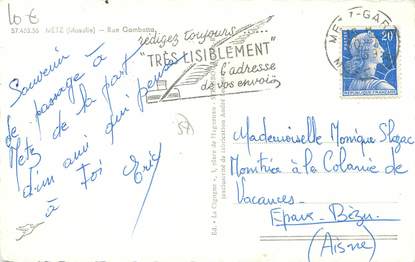 10 €
57.463.56 METZ (Moselle) - Rue Gambetta
rédigez toujours
"TRÈS LISIBLEMENT"
l'adresse
de vos envois
METZ-GARE
POSTES
20
RÉPUBLIQUE FRANÇAISE
Souvenir
de passage à
Metz de la part
d'un ami qui pense
à toi Eric
57
Ed. "La Cigogne",
Mademoiselle Monique
à la Colonie de
Vacances
Epaux-Bézu
(Aisne)